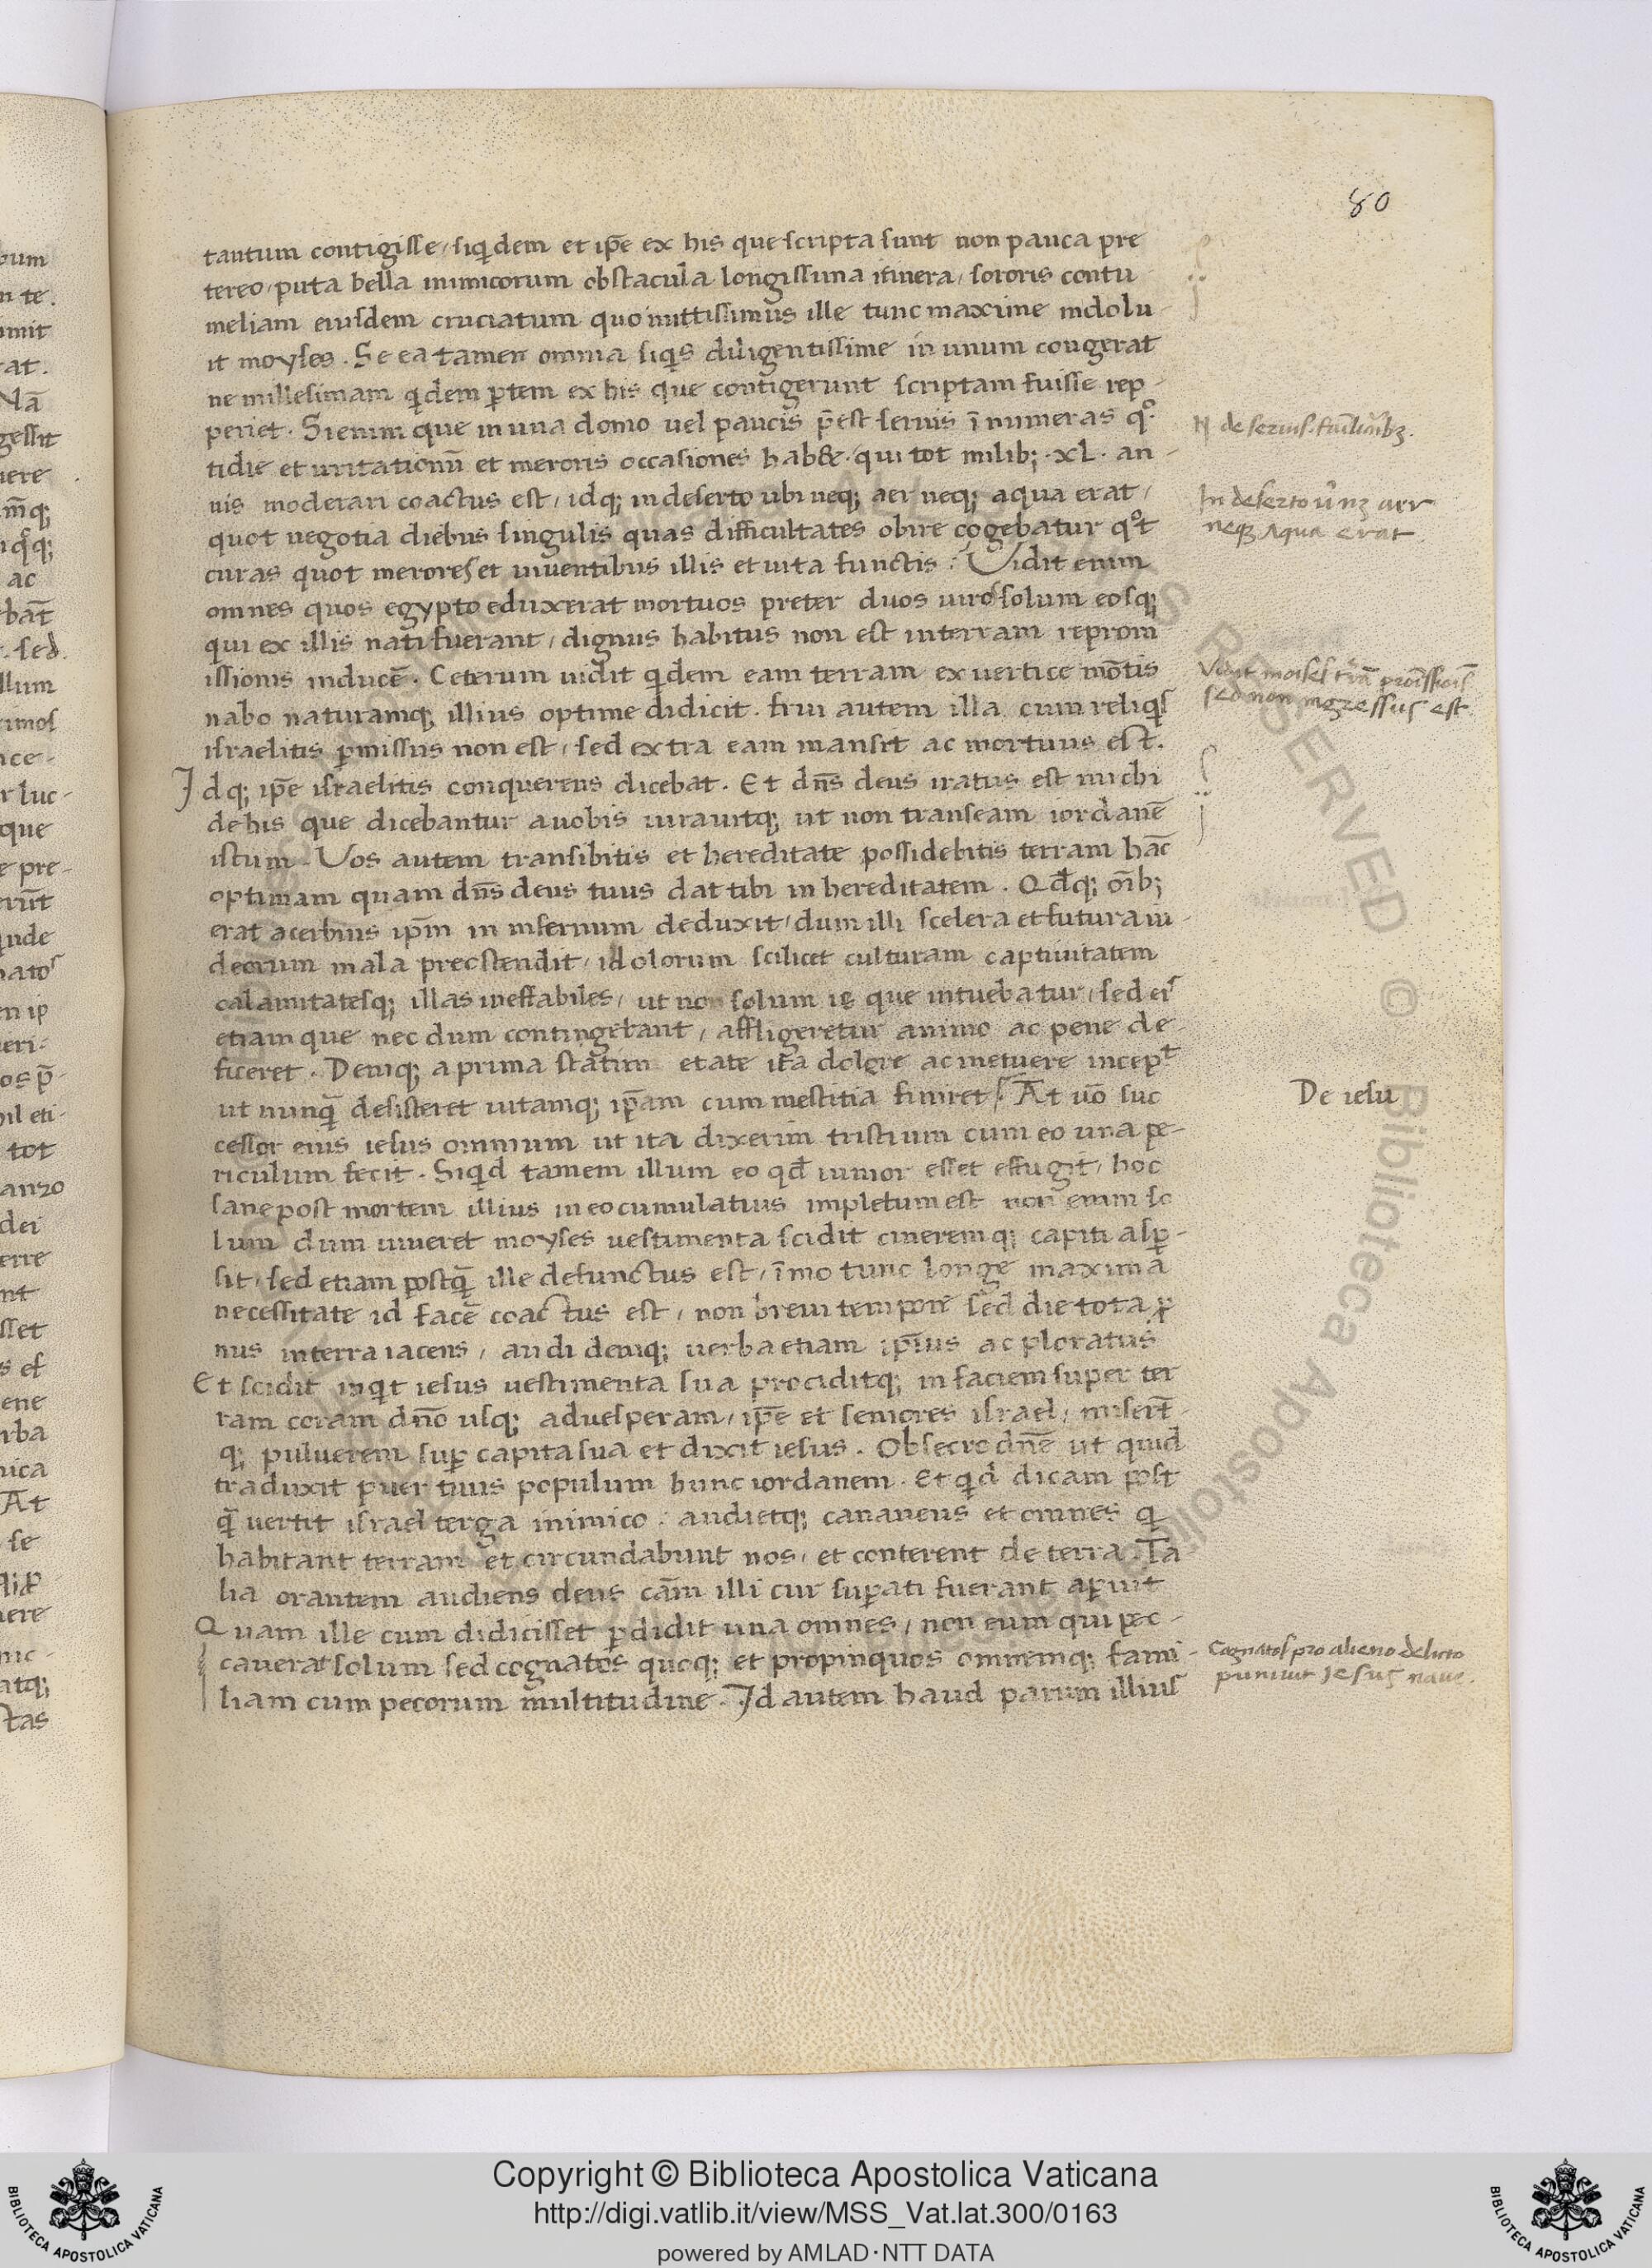 80
tantum contigisse, siqidem et ip̄e ex his que scripta sunt non pauca pre
tereo, puta bella inimicorum obstacula longissima itinera, sororis contu
meliam eiusdem cruciatum quo mittissimus ille tunc maxime indolu
it moyses. Se ea tamen omnia siqis diligentissime in unum congerat
ne millesimam qidem ꝑtem ex his que contigerunt scriptam fuisse rep-
periet. Si enim que in una domo uel paucis p̄est seruis īnumeras qͦ
tidie et irritationū et meroris occasiones hab&. qui tot milib; .XL. an-
nis moderari coactus est, idq; in deserto ubi neq; aer neq; aqua erat,
quot negotia diebus singulis quas difficultates obire cogebatur qͦt
curas quot merores et uiuentibus illis et uita functis. Uidit enim
omnes quos egypto eduxerat mortuos preter duos uiros solum eosq;
qui ex illis nati fuerant, dignus habitus non est in terram reprom
issionis inducē. Ceterum uidit qidem eam terram ex uertice mōtis
nabo naturamq; illius optime didicit. frui autem illa cum reliqis
israelitis ꝑmissus non est, sed extra eam mansit ac mortuus est.
Idq; ip̄e israelitis conquerens dicebat. Et dn̄s deus iratus est michi
de his que dicebantur a uobis iurauitq; ut non transeam iordanē
istum. Uos autem transibitis et hereditate possidebitis terram hāc
optimam quam dn̄s deus tuus dat tibi in hereditatem. Qd̄q; oīb;
erat acerbius ip̄m in infernum deduxit, dum illi scelera et futura iu-
deorum mala precstendit, idolorum scilicet culturam captiuitatem
calamitatesq; illas ineffabiles, ut non solum is que intuebatur, sed eis
etiam que nec dum contingebant, affligeretur animo ac pene de-
ficeret. Deniq; a prima statim etate ita dolere ac metuere incepᵗ
ut nunq̄ desisteret uitamq; ip̄am cum mestitia finiret. At uō suc
cessor eius iesus omnium ut ita dixerim tristium cum eo una pe-
riculum fecit. Siqid tamem illum eo qd̄ iunior esset effugit, hoc
sane post mortem illius in eo cumulatius impletum est non enim so
lum dum uiueret moyses uestimenta scidit cineremq; capiti asꝑ-
sit, sed etiam postq̄ ille defunctus est, īmo tunc longe maxima
necessitate id facē coactus est, non breui tempore sed die tota ꝓ
nus in terra iacens, audi deniq; uerba etiam ip̄ius ac ploratus
Et scidit inqit iesus uestimenta sua prociditq; in faciem super ter
ram coram dn̄o usq; ad uesperam, ip̄e et seniores israel, misert̄-
q; puluerem suꝑ capita sua et dixit iesus. Obsecro dn̄e ut quid
traduxit puer tuus populum hunc iordanem. Et qid dicam post
q̄ uertit israel terga inimico. audietq; cananeus et omnes qi
habitant terram et circundabunt nos, et conterent de terra. Ta
lia orantem audiens deus cām illi cur suꝑati fuerant aꝑuit
Quam ille cum didicisset ꝑdidit una omnes, non eum qui pec-
cauerat solum sed cognatos quoq; et propinquos omnemq; fami-
liam cum pecorum multitudine. Id autem haud parum illius
In deserto
neqȝ aqua erat
sed non ingressus est
De iesu
Cognatos pro alieno delicto
puniuit Iesus naue.
Copyright © Biblioteca Apostolica Vaticana
http://digi.vatlib.it/view/MSS_Vat.lat.300/0163
powered by AMLAD·NTT DATA
BIBLIOTECA APOSTOLICA VATICANA
BIBLIOTECA APOSTOLICA VATICANA